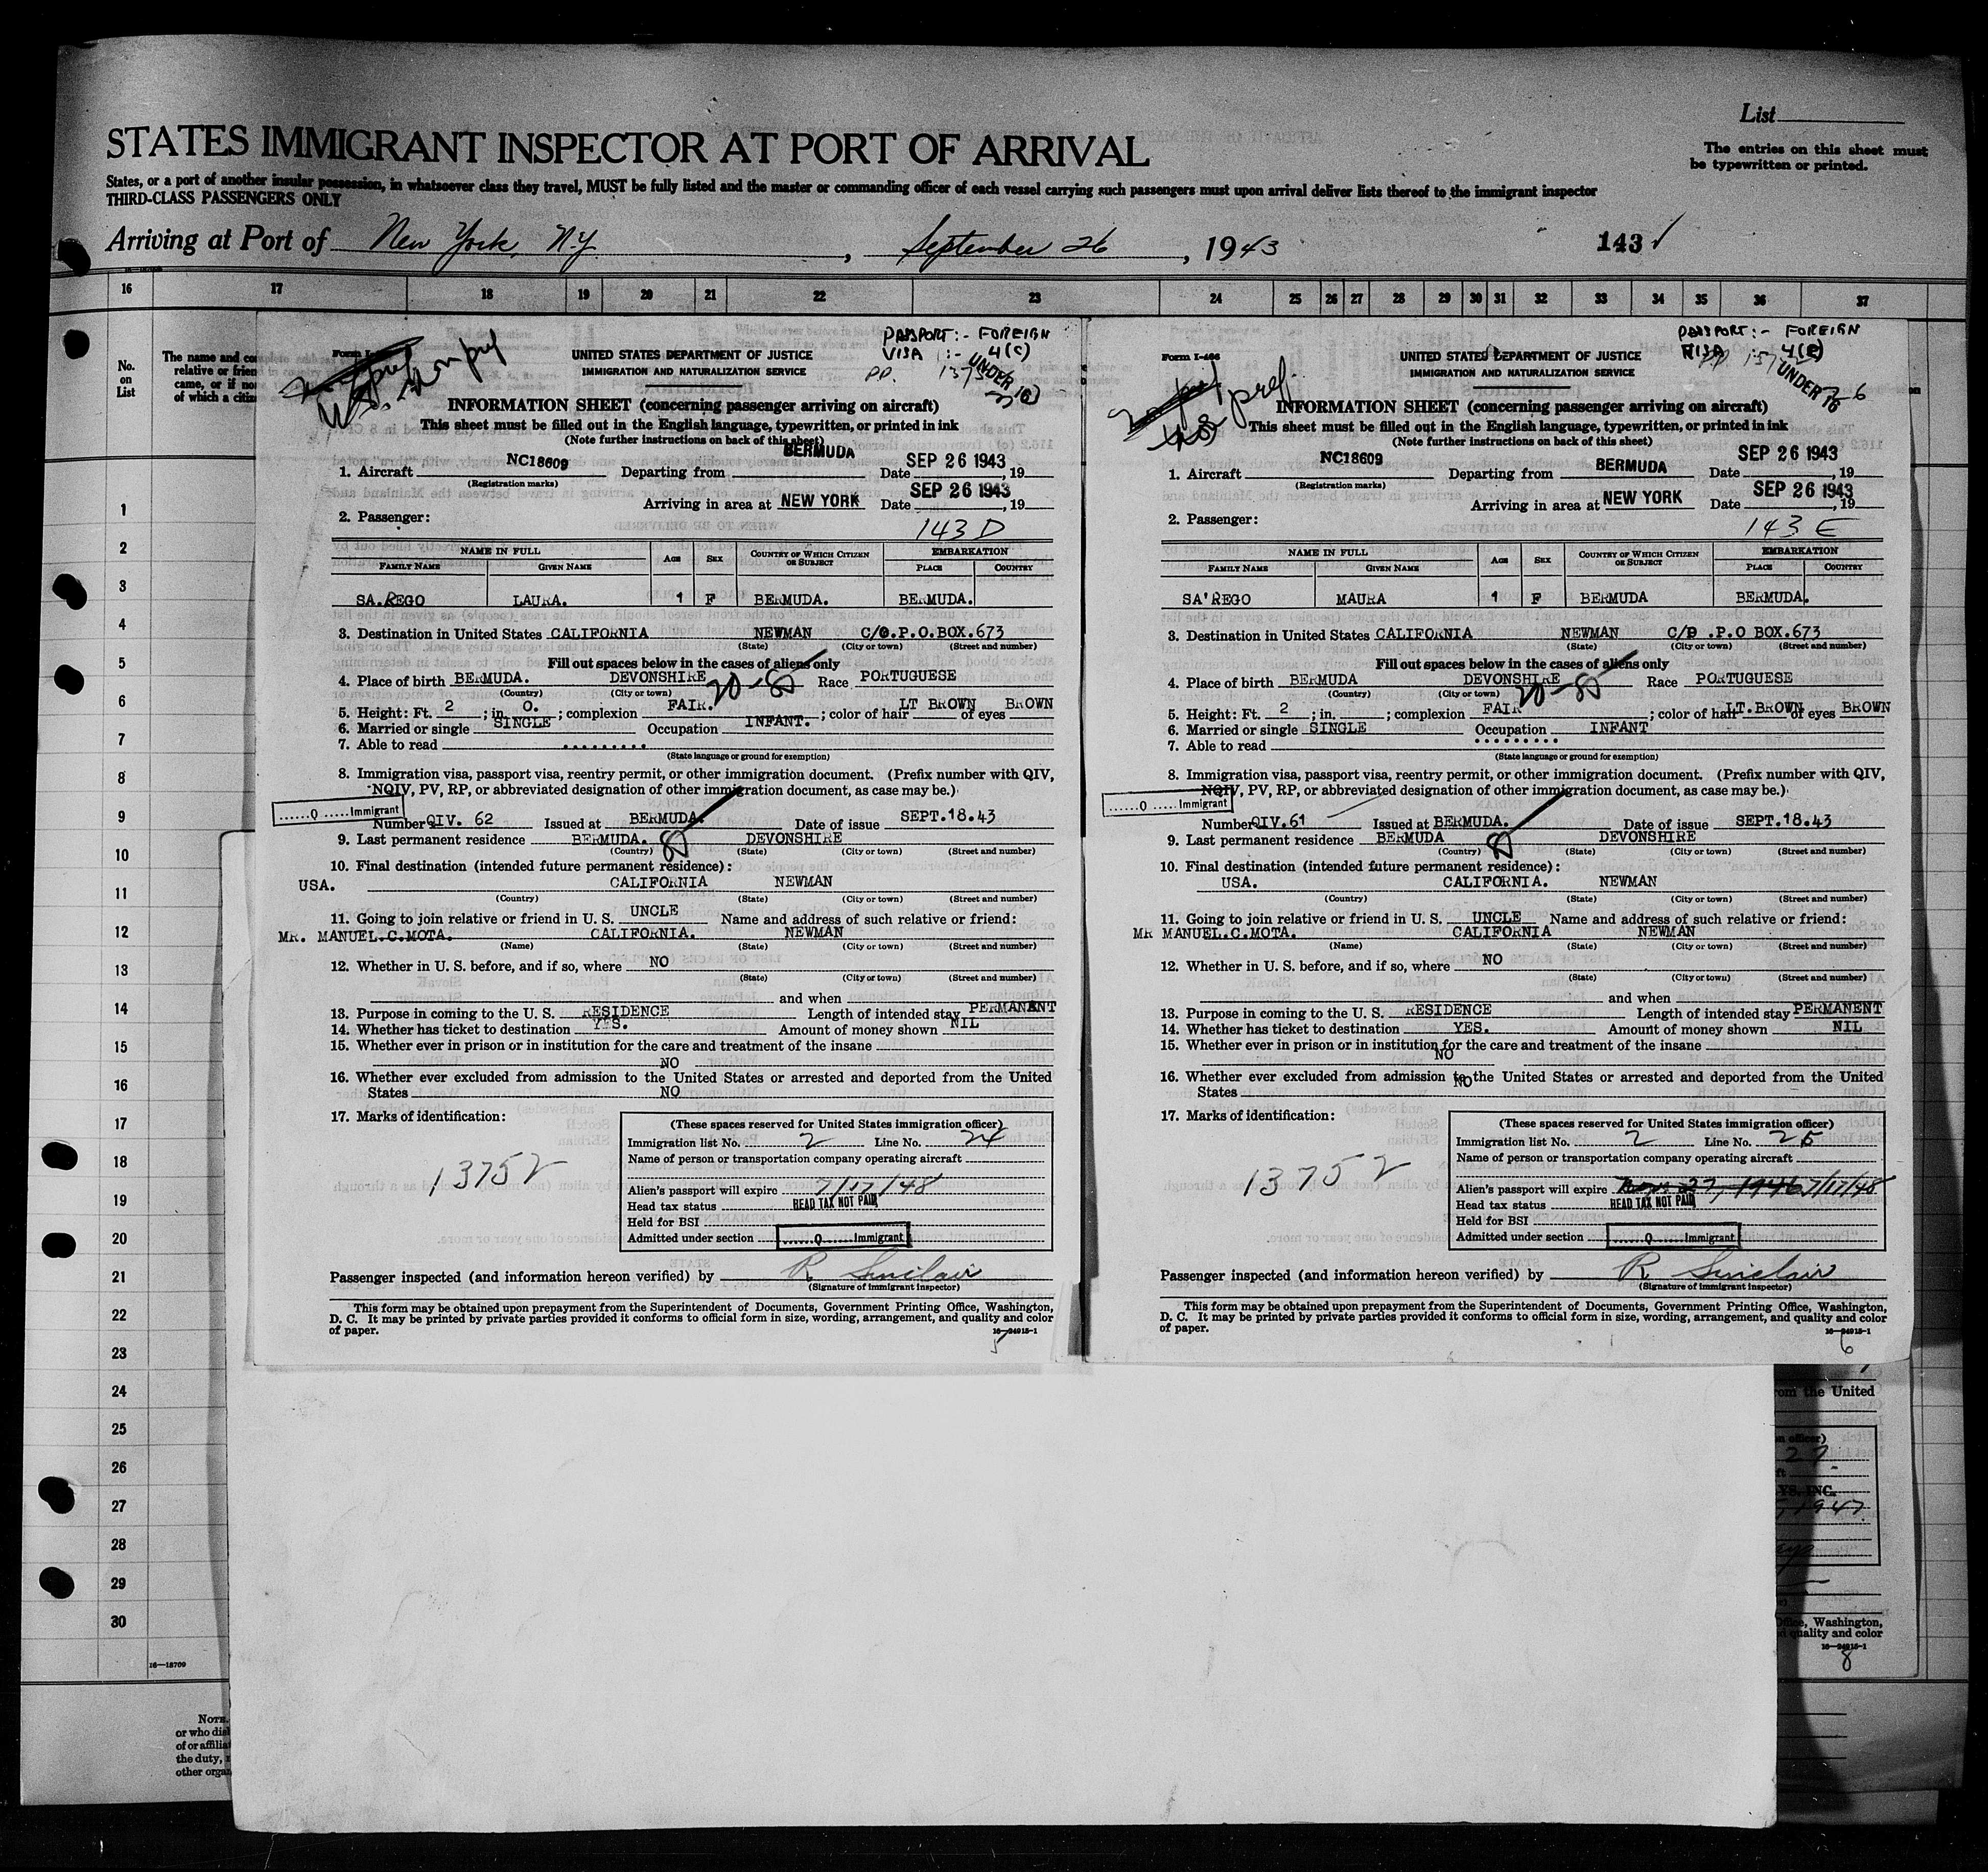 List
STATES IMMIGRANT INSPECTOR AT PORT OF ARRIVAL
The entries on this sheet must
be typewritten or printed.
States, or a port of another insular possession, in whatsoever class they travel, MUST be fully listed and the master or commanding officer of each vessel carrying such passengers must upon arrival deliver lists thereof to the immigrant inspector
THIRD-CLASS PASSENGERS ONLY
Arriving at Port of New York, N.Y. , September 26 , 1943 143
16 17 18 19 20 21 22 23 24 25 26 27 28 29 30 31 32 33 34 35 36 37
No.
on
List
The name and co
relative or frien
came, or if no
of which a citiz
1
2
3
4
5
6
7
8
9
10
11
12
13
14
15
16
17
18
19
20
21
22
23
24
25
26
27
28
29
30
16—18709
NOTE.
or who disl
of or affilia
the duty,
other orga
PASSPORT:- FOREIGN
VISA :- 4(C)
P.P.
UNDER 16
UNITED STATES DEPARTMENT OF JUSTICE
IMMIGRATION AND NATURALIZATION SERVICE
INFORMATION SHEET (concerning passenger arriving on aircraft)
This sheet must be filled out in the English language, typewritten, or printed in ink
(Note further instructions on back of this sheet)
1. Aircraft NC18609 Departing from BERMUDA Date SEP 26 1943, 19
(Registration marks)
Arriving in area at NEW YORK Date SEP 26 1943, 19
2. Passenger: 143 D
NAME IN FULL AGE SEX COUNTRY OF WHICH CITIZEN OR SUBJECT EMBARKATION
FAMILY NAME GIVEN NAME PLACE COUNTRY
SA.REGO LAURA. 1 F BERMUDA. BERMUDA.
3. Destination in United States CALIFORNIA NEWMAN C/O.P.O.BOX.673
(State) (City or town) (Street and number)
Fill out spaces below in the cases of aliens only
4. Place of birth BERMUDA. DEVONSHIRE Race PORTUGUESE
(Country) (City or town)
5. Height: Ft. 2 ; in. 0. ; complexion FAIR. ; color of hair LT BROWN of eyes BROWN
6. Married or single SINGLE Occupation INFANT.
7. Able to read
(State language or ground for exemption)
8. Immigration visa, passport visa, reentry permit, or other immigration document. (Prefix number with QIV,
NQIV, PV, RP, or abbreviated designation of other immigration document, as case may be.)
......Q .....Immigrant
Number QIV. 62 Issued at BERMUDA. Date of issue SEPT.18.43
9. Last permanent residence BERMUDA. DEVONSHIRE
(Country) (State) (City or town) (Street and number)
10. Final destination (intended future permanent residence):
USA. CALIFORNIA NEWMAN
(Country) (State) (City or town) (Street and number)
11. Going to join relative or friend in U. S. UNCLE Name and address of such relative or friend:
MR. MANUEL.C.MOTA. CALIFORNIA. NEWMAN
(Name) (State) (City or town) (Street and number)
12. Whether in U. S. before, and if so, where NO
(State) (City or town) (Street and number)
and when
13. Purpose in coming to the U. S. RESIDENCE Length of intended stay PERMANANT
14. Whether has ticket to destination YES. Amount of money shown NIL
15. Whether ever in prison or in institution for the care and treatment of the insane
NO
16. Whether ever excluded from admission to the United States or arrested and deported from the United
States NO
17. Marks of identification:
13752
(These spaces reserved for United States immigration officer)
Immigration list No. 2 Line No. 24
Name of person or transportation company operating aircraft
Alien's passport will expire 7/17/48
Head tax status HEAD TAX NOT PAID
Held for BSI
Admitted under section ......Q......Immigrant
Passenger inspected (and information hereon verified) by R Sinclair
(Signature of immigrant inspector)
This form may be obtained upon prepayment from the Superintendent of Documents, Government Printing Office, Washington,
D. C. It may be printed by private parties provided it conforms to official form in size, wording, arrangement, and quality and color
of paper.
16—24915-1
5
PASSPORT:- FOREIGN
VISA :- 4(C)
UNDER 16
Form I-466
UNITED STATES DEPARTMENT OF JUSTICE
IMMIGRATION AND NATURALIZATION SERVICE
INFORMATION SHEET (concerning passenger arriving on aircraft)
This sheet must be filled out in the English language, typewritten, or printed in ink
(Note further instructions on back of this sheet)
1. Aircraft NC18609 Departing from BERMUDA Date SEP 26 1943, 19
(Registration marks)
Arriving in area at NEW YORK Date SEP 26 1943, 19
2. Passenger: 143 E
NAME IN FULL AGE SEX COUNTRY OF WHICH CITIZEN OR SUBJECT EMBARKATION
FAMILY NAME GIVEN NAME PLACE COUNTRY
SA'REGO MAURA 1 F BERMUDA BERMUDA.
3. Destination in United States CALIFORNIA NEWMAN C/O .P.O BOX.673
(State) (City or town) (Street and number)
Fill out spaces below in the cases of aliens only
4. Place of birth BERMUDA DEVONSHIRE Race PORTUGUESE
(Country) (City or town)
5. Height: Ft. 2 ; in. ; complexion FAIR ; color of hair LT.BROWN of eyes BROWN
6. Married or single SINGLE Occupation INFANT
7. Able to read
(State language or ground for exemption)
8. Immigration visa, passport visa, reentry permit, or other immigration document. (Prefix number with QIV,
NQIV, PV, RP, or abbreviated designation of other immigration document, as case may be.)
......Q ..... Immigrant
Number QIV.61 Issued at BERMUDA. Date of issue SEPT.18.43
9. Last permanent residence BERMUDA DEVONSHIRE
(Country) (State) (City or town) (Street and number)
10. Final destination (intended future permanent residence):
USA. CALIFORNIA. NEWMAN
(Country) (State) (City or town) (Street and number)
11. Going to join relative or friend in U. S. UNCLE Name and address of such relative or friend:
MR MANUEL.C.MOTA. CALIFORNIA NEWMAN
(Name) (State) (City or town) (Street and number)
12. Whether in U. S. before, and if so, where NO
(State) (City or town) (Street and number)
and when
13. Purpose in coming to the U. S. RESIDENCE Length of intended stay PERMANENT
14. Whether has ticket to destination YES. Amount of money shown NIL
15. Whether ever in prison or in institution for the care and treatment of the insane
NO
16. Whether ever excluded from admission to the United States or arrested and deported from the United
States NO
17. Marks of identification:
13752
(These spaces reserved for United States immigration officer)
Immigration list No. 2 Line No. 25
Name of person or transportation company operating aircraft
Alien's passport will expire 7/17/48
Head tax status HEAD TAX NOT PAID
Held for BSI
Admitted under section ......Q......Immigrant
Passenger inspected (and information hereon verified) by R Sinclair
(Signature of immigrant inspector)
This form may be obtained upon prepayment from the Superintendent of Documents, Government Printing Office, Washington,
D. C. It may be printed by private parties provided it conforms to official form in size, wording, arrangement, and quality and color
of paper.
16—24915-1
6
om the United
n officer)
27
YS. INC.
, 1947
Office, Washington,
d quality and color
16—24915-1
8